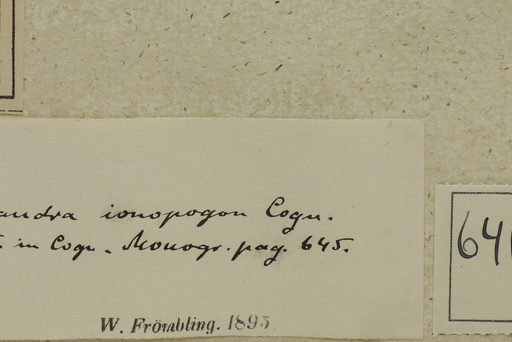 andra ionopogon Cogn.
in Cogn. Monogr. pag. 645.
W. Frömbling. 1895
64